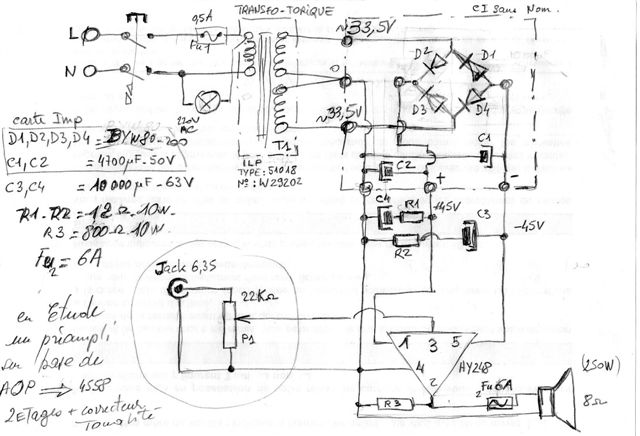 TRANSFO-TORIQUE
CI sans Nom.
L
0,5A
Fu1
~33,5V
N
D2
D1
0
D3
D4
220V
AC
~33,5V
T1
ILP
TYPE: 51018
Nº: W29202
carte Imp
D1,D2,D3,D4 = BYW80-200
C1,C2 = 4700µF-50V
C3,C4 = 10 000µF-63V
R1-R2 = 12Ω-10W
R3 = 800Ω 10W
Fu2 = 6A
C1
C2
+
-
C4
R1
+45V
C3
-45V
R2
Jack 6,35
22KΩ
P1
en Etude
un préampli
sur base de
AOP ⇒ 4558
2 Etages + correcteur
Tonalité
1
3
5
4
2
HY248
R3
Fu 6A
2
(250W)
8Ω